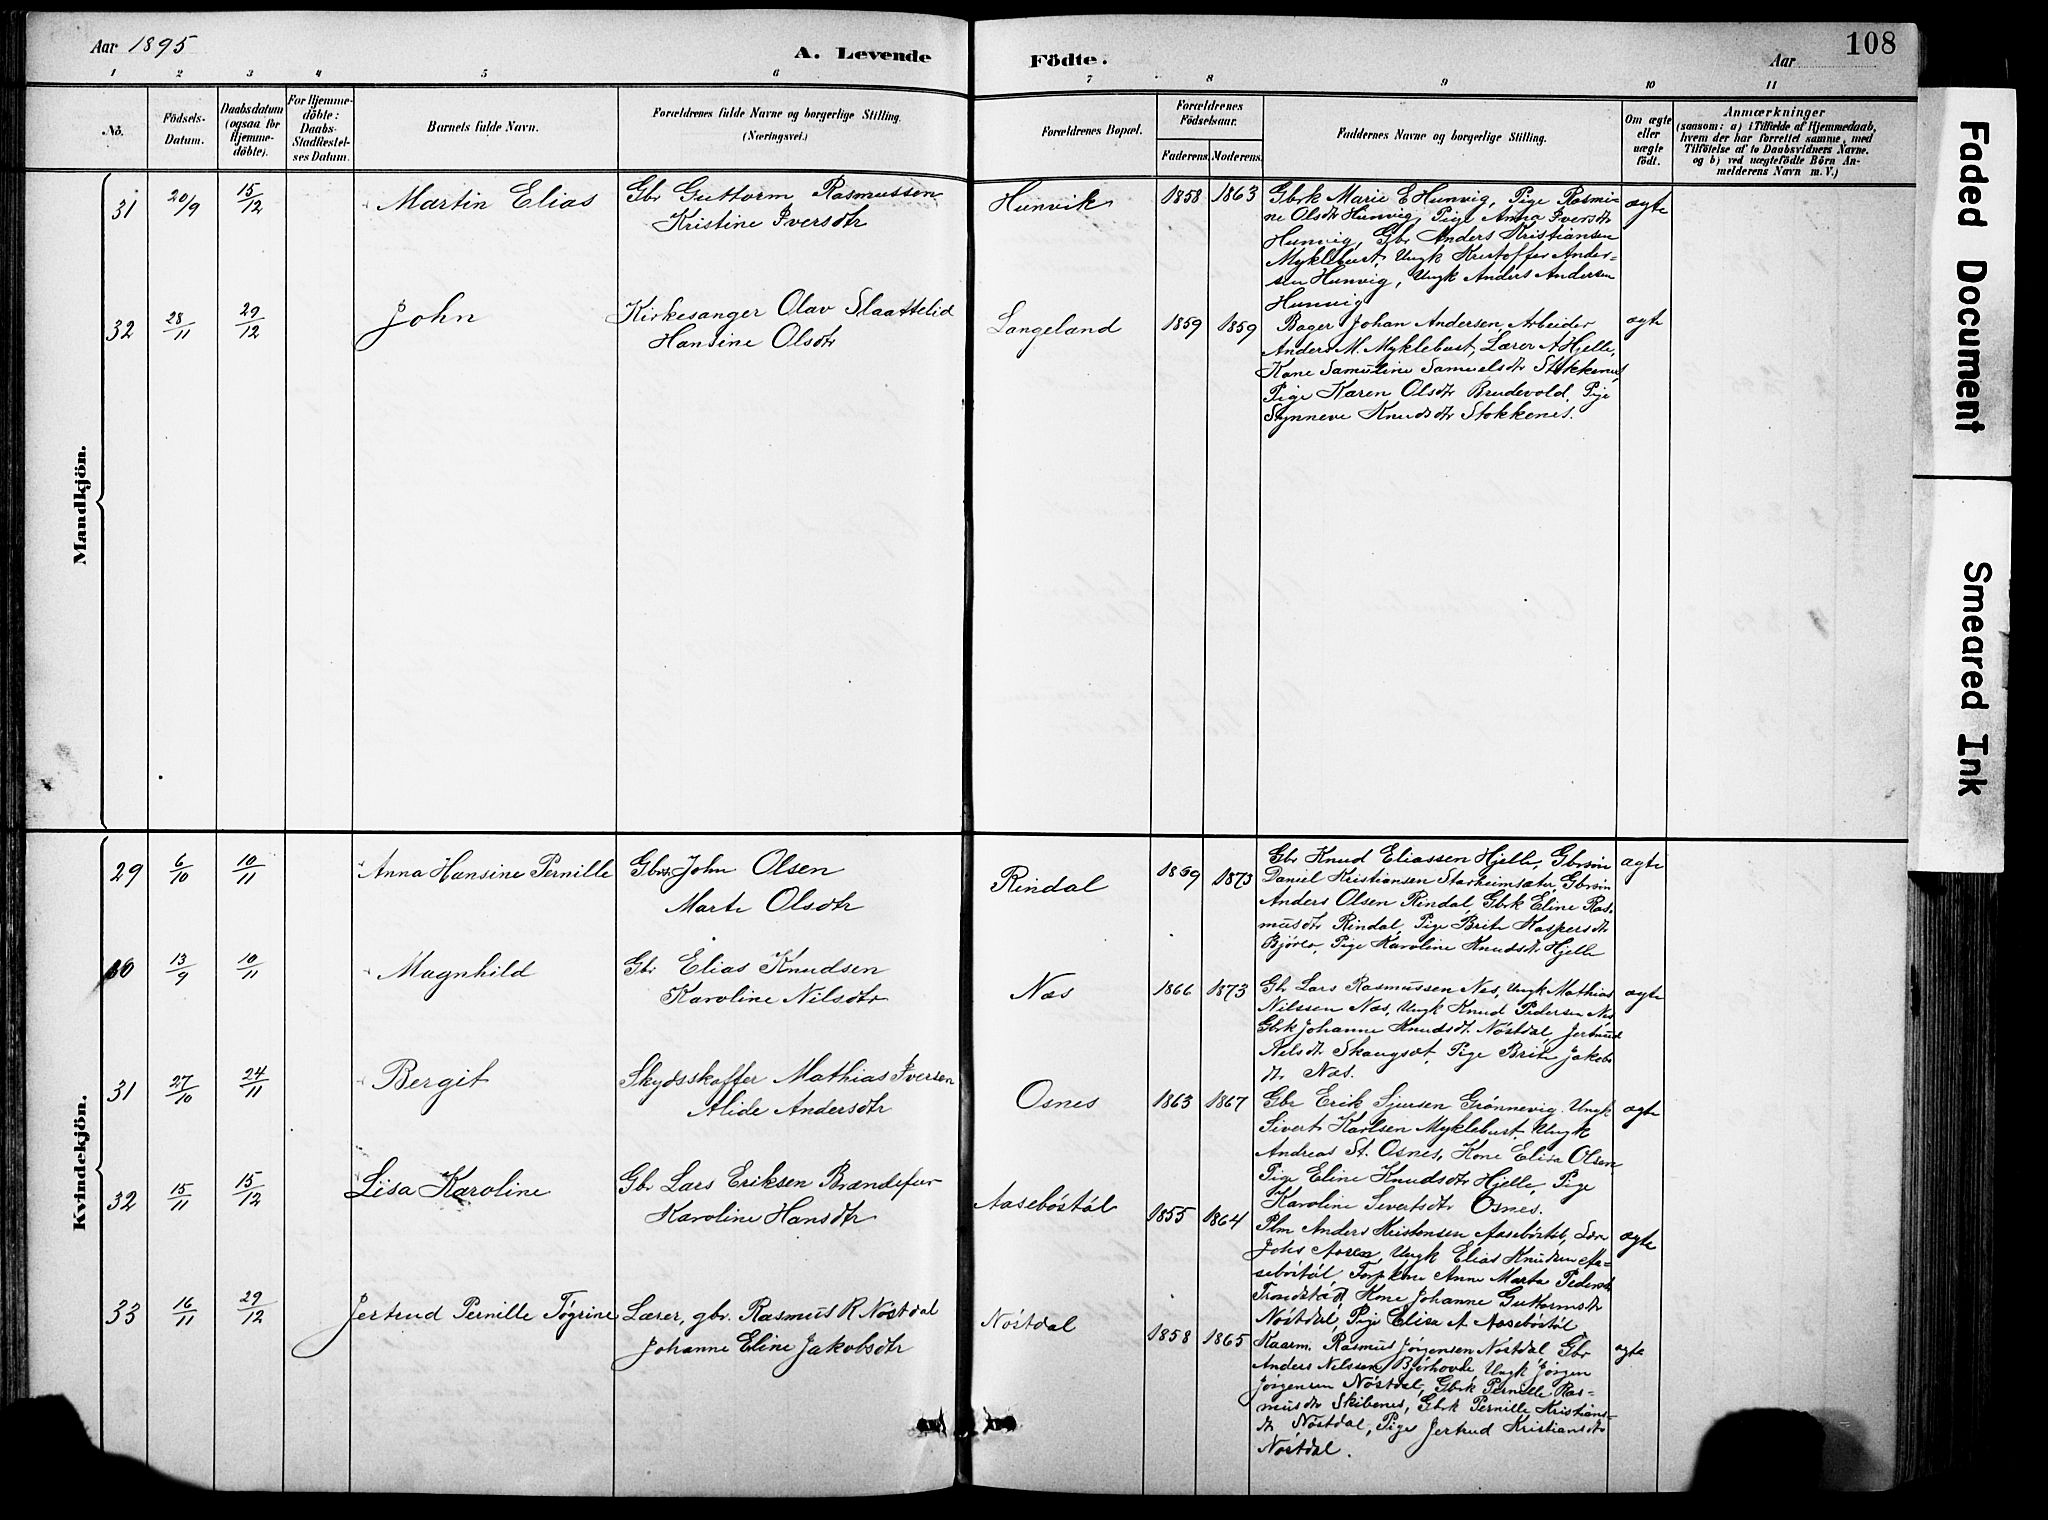 Aar 1895
A. Levende
Födte.
Aar
108
1 2 3 4 5 6 7 8 9 10 11
No.
Födsels-
Datum.
Daabsdatum
(ogsaa for
Hjemme-
döbte).
For Hjemme-
döbte:
Daabs-
Stadfæstel-
ses Datum.
Barnets fulde Navn.
Forældrenes fulde Navne og borgerlige Stilling.
(Næringsvei.)
Forældrenes Bopæl.
Forældrenes
Födselsaar.
Faderens. Moderens.
Faddernes Navne og borgerlige Stilling.
Om ægte
eller
uægte
födt.
Anmærkninger
(saasom: a) i Tilfælde af Hjemmedaab,
hvem der har forrettet samme, med
Tilföielse af to Daabsvidners Navne.
og b) ved uægtefödte Börn An-
melderens Navn m. V.)
Mandkjön.
31 20/9 15/12 Martin Elias
Gbr Guttorm Rasmussen
Kristine Iversdtr
Hunvik 1858 1863
Gbrk Marie E Hunvig, Pige Rasmi-
ne Olsdtr Hunvig, Pige Anna Iversdtr
Hunvig, Gbr Anders Kristiansen
Myklebust, Ungk Kristoffer Ander-
sen Hunvig, Ungk Anders Andersen
Hunvig
ægte
32 28/11 29/12 John
Kirkesanger Olav Slaattelid
Hansine Olsdtr
Langeland 1859 1859
Bager Johan Andersen, Arbeider
Anders M. Myklebust, Lærer A Hjelle,
Kone Samuline Samuelsdtr Stokkenes
Pige Karen Olsdtr Brudevold, Pige
Synneve Knudsdtr Stokkenes.
ægte
Kvindekjön.
29 6/10 10/11 Anna Hansine Pernille
Gbrs. John Olsen
Marte Olsdtr
Rindal 1869 1873
Gbr Knud Eliassen Hjelle, Gbrsøn
Daniel Kristiansen Starheimsæter, Gbrsøn
Anders Olsen Rindal, Gbrk Eline Ras-
musdtr Rindal, Pige Brite Kaspersdtr
Bjørlo, Pige Karoline Knudsdt. Hjelle
ægte
30 13/9 10/11 Magnhild
Gbr Elias Knudsen
Karoline Nilsdtr
Næs 1866 1873
Gbr Lars Rasmussen Nes, Ungk Mathias
Nilssen Næs, Ungk Knud Pedersen Nes
Gbrk Johanne Knudsdt. Nøstdal, Jertrud
Nilsdtr Skaugsæt, Pige Brite Jakobs
dtr Næs.
ægte
31 27/10 24/11 Bergit
Skydsskaffer Mathias Iversen
Alide Andersdtr
Osnes 1863 1867
Gbr Erik Sjursen Grønnevig, Ungk
Sivert Karlsen Myklebust, Ungk
Andreas St. Osnes, Kone Elisa Olsen
Pige Eline Knudsdtr Hjelle, Pige
Karoline Sivertsdtr Osnes.
ægte
32 15/11 15/12 Lisa Karoline
Gbr Lars Eriksen Brændefur
Karoline Hansdtr
Aasebøstøl 1855 1864
Plm Anders Kristensen Aasebøstøl, Lær
Johs Aaren, Ungk Elias Knudsen Aa-
sebøstøl, Torpkone Anne Marta Pedersdtr
Trondstad, Kone Johanne Guttormsdtr
Nøstdal, Pige Elisa A Aasebøstøl
ægte
33 16/11 29/12 Jertrud Pernille Tøgrine
Lærer, gbr. Rasmus R Nøstdal
Johanne Eline Jakobsdtr
Nøstdal 1858 1865
Kaarm. Rasmus Jørgensen Nøstdal, Gbr
Anders Nilssen Bjørhovde, Ungk Jørgen
Jørgensen Nøstdal, Gbrk Pernille Ras-
musdtr Skibenes, Gbrk Pernille Kristians-
dtr, Nøstdal, Pige Jertrud Kristiansdtr
Nøstdal.
ægte
Faded Document
Smeared Ink